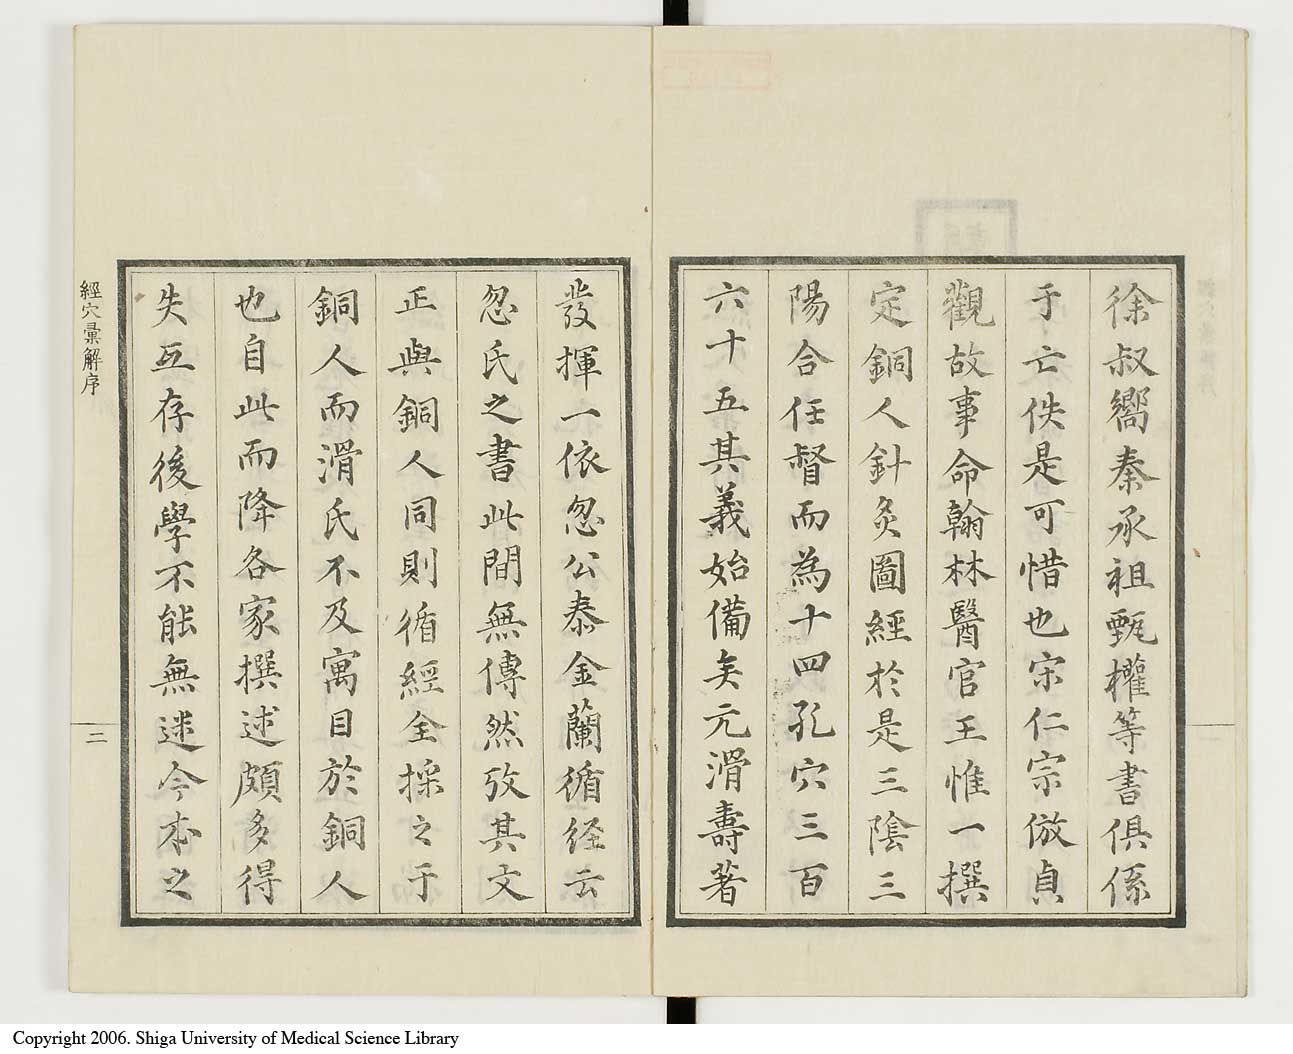 徐叔嚮秦承祖甄權等書俱係
于亡佚是可惜也宋仁宗倣貞
觀故事命翰林醫官王惟一撰
定銅人針灸圖經於是三陰三
陽合任督而為十四孔穴三百
六十五其義始備矣元滑壽著
發揮一依忽公泰金蘭循経云
忽氏之書此間無傳然攷其文
正與銅人同則循經全採之于
銅人而滑氏不及寓目於銅人
也自此而降各家撰述頗多得
失互存後學不能無迷今本之
經穴彙解序
二
Copyright 2006. Shiga University of Medical Science Library